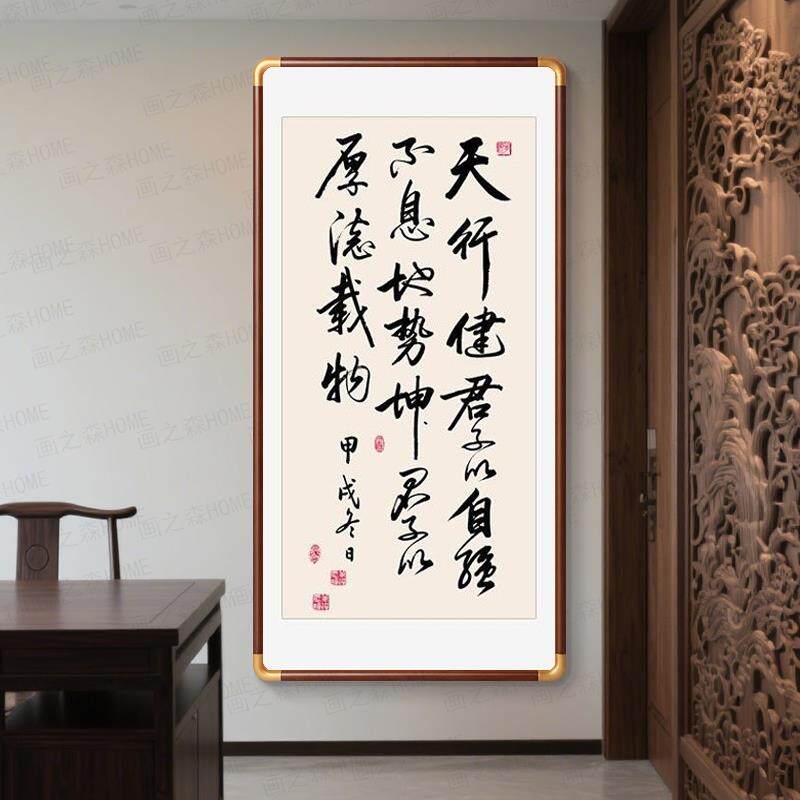 天行健君子以自强
不息地势坤君子以
厚德载物
甲戌冬日
画之森HOME